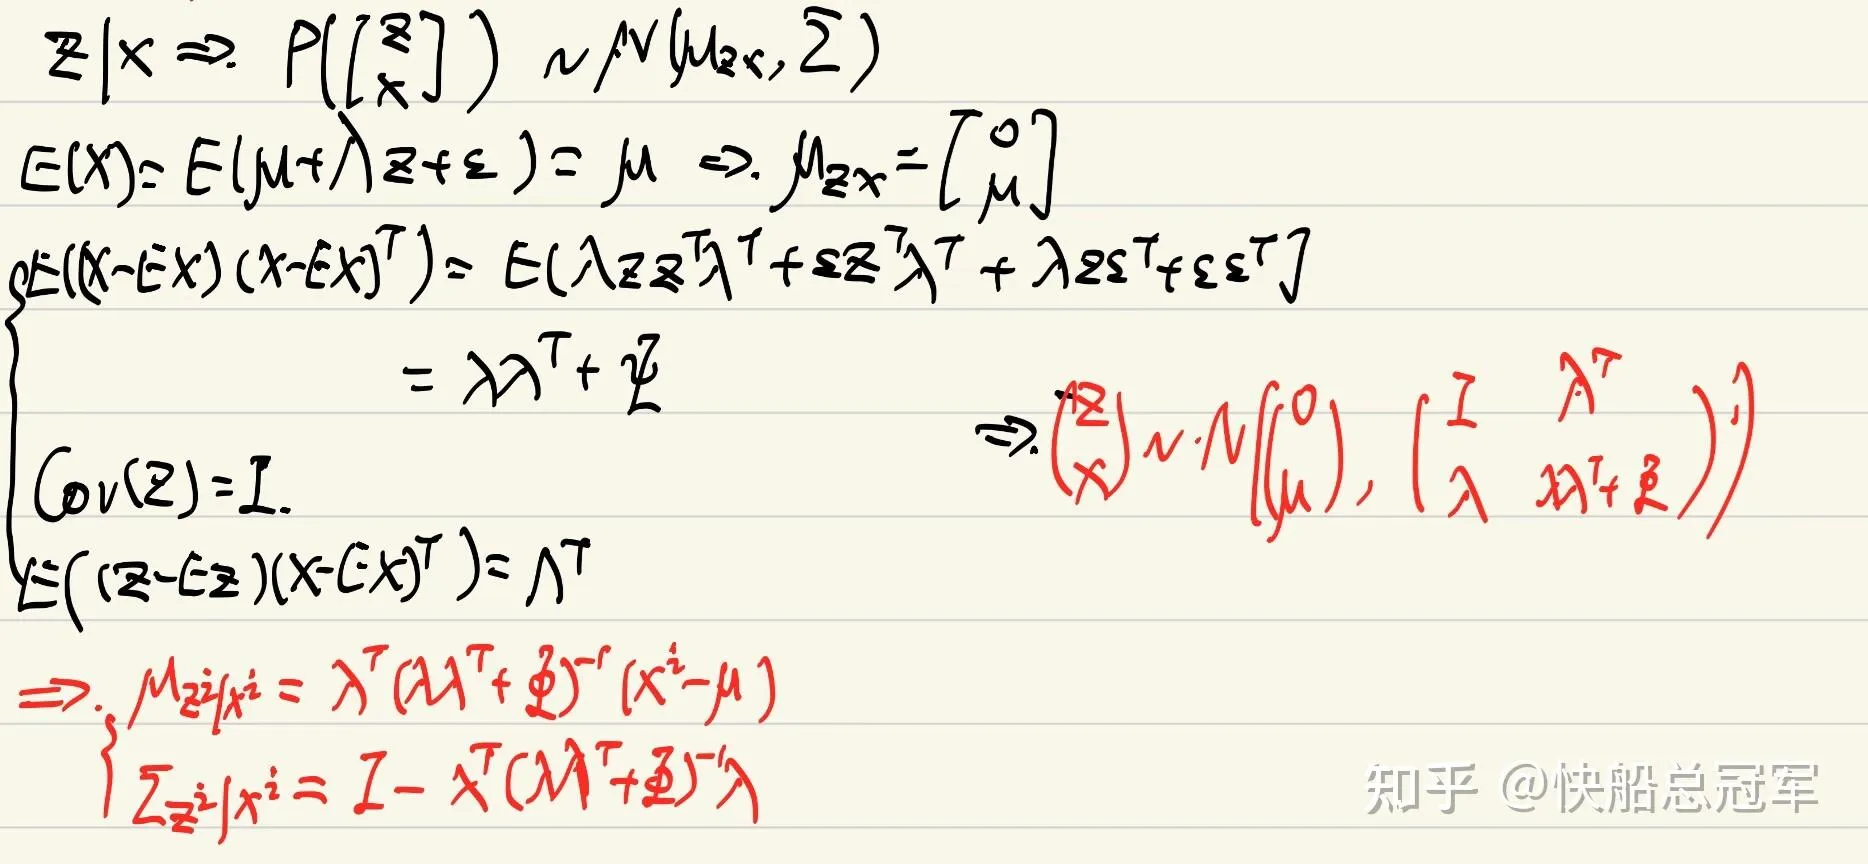 z|x ⇒. P([z x]) ~ N(μ_zx, Σ)
E(X) = E(μ+λz+ε) = μ ⇒. μ_zx = [0 μ]
E((X-EX)(X-EX)^T) = E(λzz^Tλ^T + εz^Tλ^T + λzε^T + εε^T]
= λλ^T + Ψ
⇒. (z x) ~ N((0 μ), (I λ^T λ λλ^T+Φ))
Cov(z) = I.
E((z-Ez)(X-EX)^T) = Λ^T
⇒. μ_{z^i|x^i} = λ^T(λλ^T+Φ)^{-1}(x^i-μ)
Σ_{z^i|x^i} = I - λ^T(λλ^T+Φ)^{-1}λ
知乎 @快船总冠军